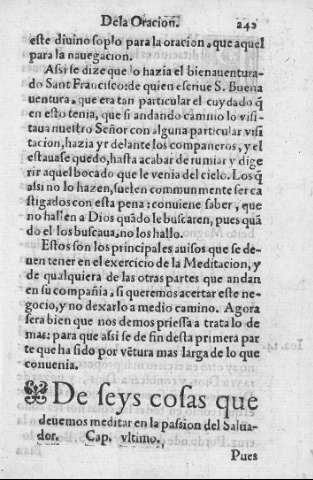 De la Oracion. 242
este diuino soplo para la oracion, que aquel
para la nauegacion.
Assi se dize que lo hazia el bienauentura-
do Sant Francisco: de quien escriue S. Buena
uentura, que era tan particular el cuydado q̃
en esto tenia, que si andando camino lo visi-
taua nuestro Señor con alguna particular visi
tacion, hazia yr delante los compañeros, y el
estauase quedo, hasta acabar de rumiar y dige
rir aquel bocado que le venia del cielo. Los q̃
assi no lo hazen, suelen communmente ser ca
stigados con esta pena: conuiene saber, que
no hallen a Dios quãdo le buscaren, pues quã
do el los buscaua, no los hallo.
Estos son los principales auisos que se de-
uen tener en el exercicio de la Meditacion, y
de qualquiera de las otras partes que andan
en su compañia, si queremos acertar este ne-
gocio, y no dexarlo a medio camino. Agora
sera bien que nos demos priessa a trata lo de
mas: para que assi se de fin desta primera par
te que ha sido por vẽtura mas larga de lo que
conuenia.
De seys cosas que
deuemos meditar en la passion del Salua-
dor. Cap. vltimo.
Pues